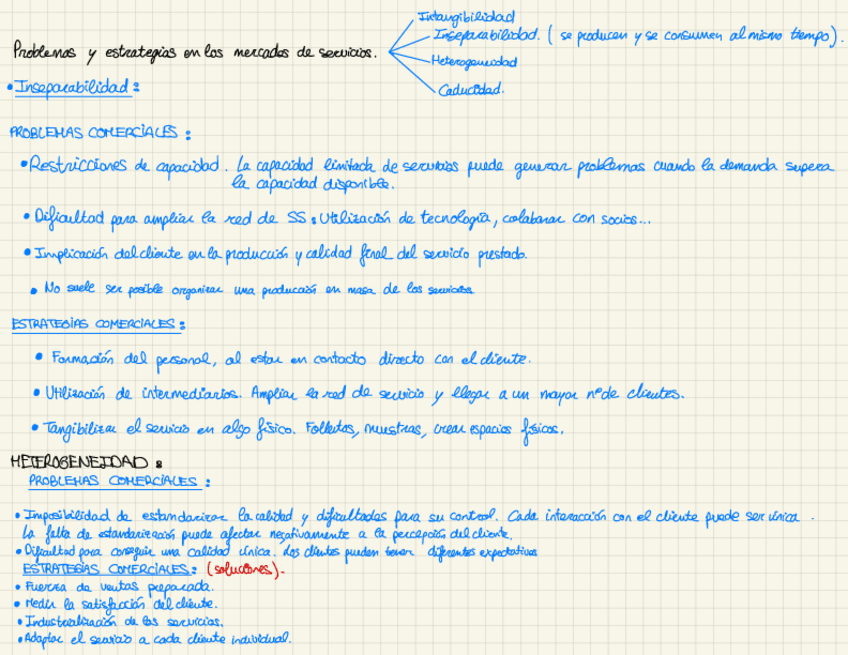 Intangibilidad
Inseparabilidad. ( se producen y se consumen al mismo tiempo).
Problemas y estrategias en los mercados de servicios.
Heterogeneidad
Caducidad.
• Inseparabilidad:
PROBLEMAS COMERCIALES:
• Restricciones de capacidad. La capacidad limitada de servicios puede generar problemas cuando la demanda supera
la capacidad disponible.
• Dificultad para ampliar la red de SS: Utilización de tecnología, colaborar con socios...
• Implicación del cliente en la producción y calidad final del servicio prestado.
• No suele ser posible organizar una producción en masa de los servicios
ESTRATEGIAS COMERCIALES:
• Formación del personal, al estar en contacto directo con el cliente.
• Utilización de intermediarios. Ampliar la red de servicio y llegar a un mayor nº de clientes.
• Tangibilizar el servicio en algo físico. Folletos, muestras, crear espacios físicos.
HETEROGENEIDAD:
PROBLEMAS COMERCIALES:
• Imposibilidad de estandarizar la calidad y dificultades para su control. Cada interacción con el cliente puede ser única.
La falta de estandarización puede afectar negativamente a la percepción del cliente.
• Dificultad para conseguir una calidad única. Los clientes pueden tener diferentes expectativas
ESTRATEGIAS COMERCIALES: (soluciones).
• Fuerza de ventas preparada.
• Medir la satisfacción del cliente.
• Industrialización de los servicios.
• Adaptar el servicio a cada cliente individual.